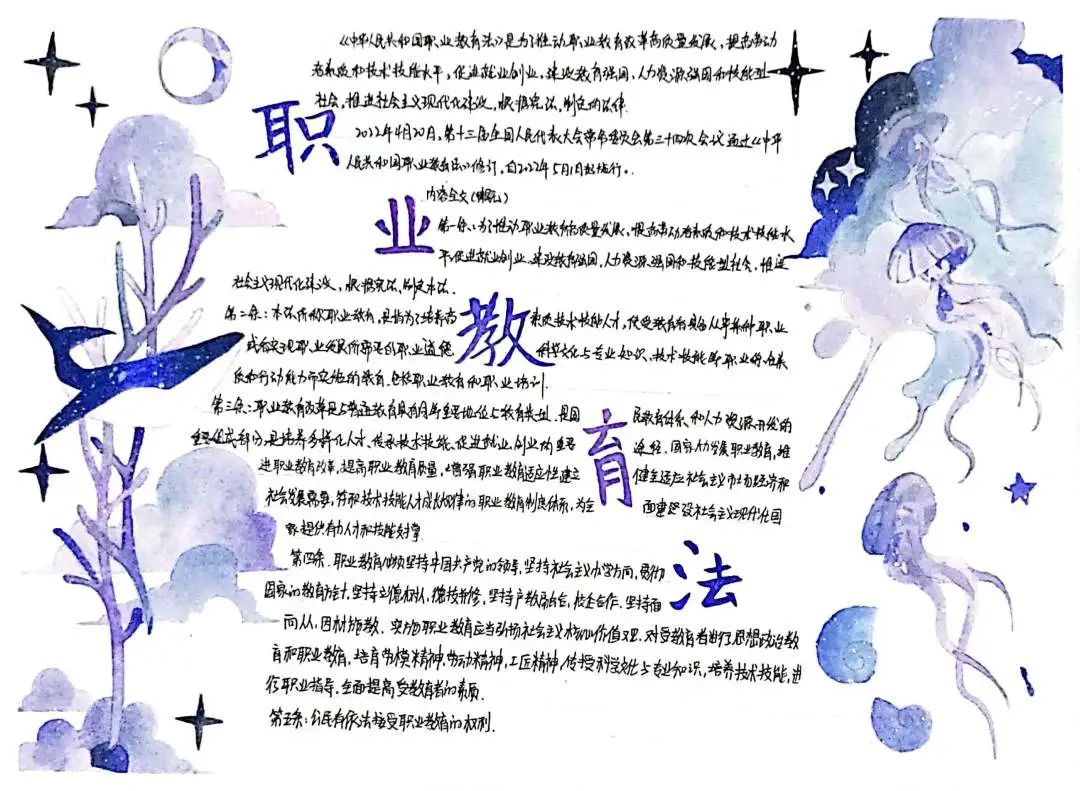 《中华人民共和国职业教育法》是为了推动职业教育改革高质量发展，提高劳动
者素质和技术技能水平，促进就业创业，建设教育强国、人力资源强国和技能型
社会，推进社会主义现代化建设，根据宪法，制定的法律.
职
2022年4月20日，第十三届全国人民代表大会常务委员会第三十四次会议通过《中华
人民共和国职业教育法》修订，自2022年5月1日起施行。
内容全文
业
第一条：为了推动职业教育高质量发展，提高劳动者素质和技术技能水
平，促进就业创业，建设教育强国、人力资源强国和技能型社会，推进
社会主义现代化建设，根据宪法，制定本法.
教
第二条：本法所称职业教育，是指为了培养高素质技术技能人才，使受教育者具备从事某种职业
或者实现职业发展所需要的职业道德、科学文化与专业知识、技术技能等职业综合素
质和行动能力而实施的教育，包括职业教育和职业培训.
育
第三条：职业教育是与普通教育具有同等重要地位的教育类型，是国民教育体系和人力资源开发的
重要组成部分，是培养多样化人才、传承技术技能、促进就业创业的重要途径.国家大力发展职业教育，推
进职业教育改革，提高职业教育质量，增强职业教育适应性，建立健全适应社会主义市场经济和
社会发展需要，符合技术技能人才成长规律的职业教育制度体系，为全面建设社会主义现代化国
家提供有力人才和技能支撑.
法
第四条.职业教育必须坚持中国共产党的领导，坚持社会主义办学方向，贯彻
国家的教育方针，坚持立德树人、德技并修，坚持产教融合、校企合作，坚持面
向人人、因材施教.实施职业教育应当弘扬社会主义核心价值观，对受教育者进行思想政治教
育和职业教育，培育劳模精神、劳动精神、工匠精神，传授科学文化与专业知识，培养技术技能，进
行职业指导，全面提高受教育者的素质.
第五条：公民有依法接受职业教育的权利.